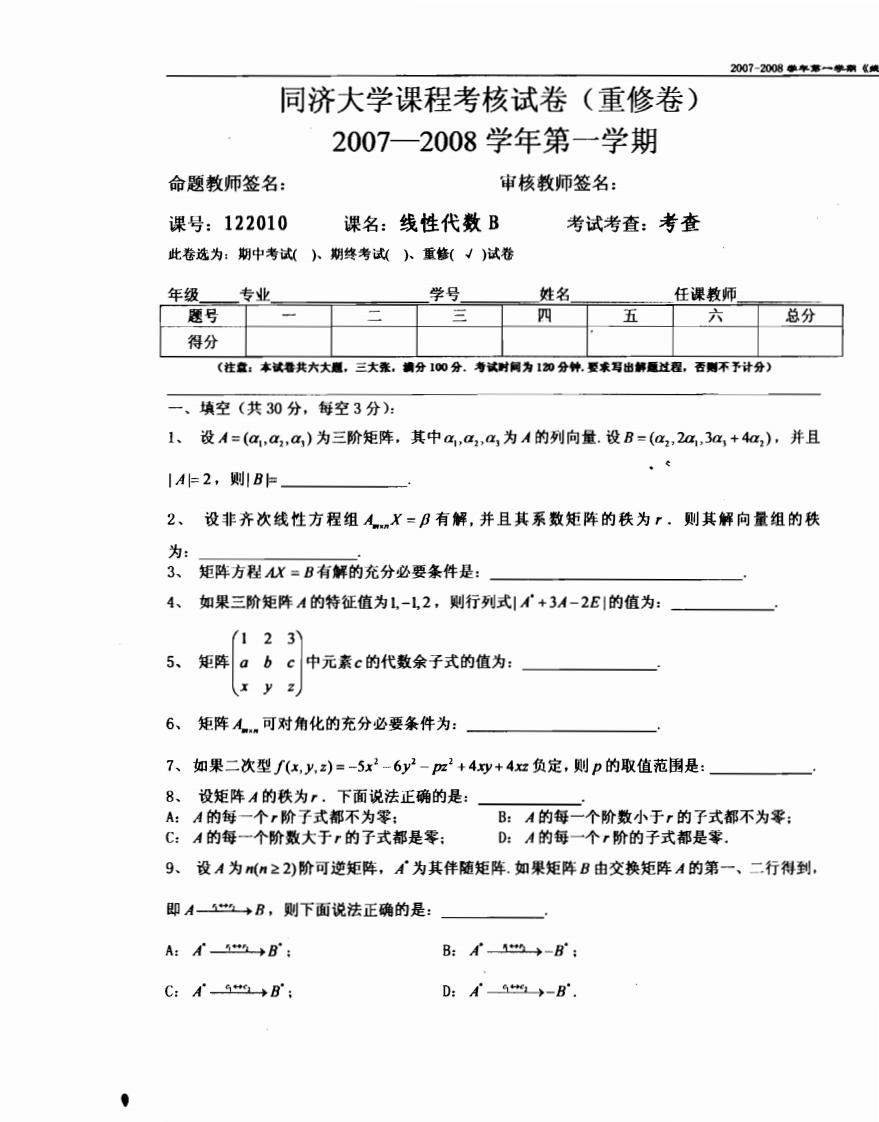 2007-2008 学年第一学期《线
同济大学课程考核试卷（重修卷）
2007—2008 学年第一学期
命题教师签名： 审核教师签名：
课号：122010 课名：线性代数 B 考试考查：考查
此卷选为：期中考试( )、期终考试( )、重修( √ )试卷
年级____专业______________学号_______姓名_________任课教师________
题号 一 二 三 四 五 六 总分
得分
（注意：本试卷共六大题，三大张，满分 100 分．考试时间为 120 分钟.要求写出解题过程，否则不予计分）
一、填空（共 30 分，每空 3 分）：
1、 设 A = (α₁,α₂,α₃) 为三阶矩阵，其中 α₁,α₂,α₃ 为 A 的列向量. 设 B = (α₂,2α₁,3α₃ + 4α₂)，并且
| A |= 2，则| B |= ____________.
2、 设非齐次线性方程组 Aₘₓₙ X = β 有解, 并且其系数矩阵的秩为 r ．则其解向量组的秩
为：_______________.
3、 矩阵方程 AX = B 有解的充分必要条件是：________________________.
4、 如果三阶矩阵 A 的特征值为1,−1,2，则行列式| A* + 3A − 2E |的值为：__________.
5、 矩阵 (1 2 3
a b c
x y z) 中元素 c 的代数余子式的值为：_____________.
6、 矩阵 Aₘₓₙ 可对角化的充分必要条件为：__________________.
7、如果二次型 f(x, y, z) = −5x² − 6y² − pz² + 4xy + 4xz 负定, 则 p 的取值范围是：__________.
8、 设矩阵 A 的秩为 r ．下面说法正确的是：__________.
A： A 的每一个 r 阶子式都不为零； B： A 的每一个阶数小于 r 的子式都不为零；
C： A 的每一个阶数大于 r 的子式都是零； D： A 的每一个 r 阶的子式都是零．
9、 设 A 为 n(n ≥ 2)阶可逆矩阵，A* 为其伴随矩阵. 如果矩阵 B 由交换矩阵 A 的第一、二行得到，
即 A —r₁↔r₂→ B，则下面说法正确的是：__________.
A： A* —r₁↔r₂→ B*； B： A* —r₁↔r₂→ −B*；
C： A* —c₁↔c₂→ B*； D： A* —c₁↔c₂→ −B*．